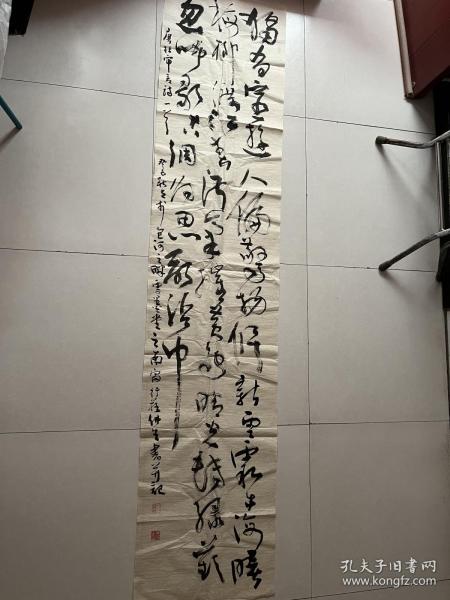 獨有宦遊人偏驚物候新雲霞出海曙
梅柳渡江春淑氣催黃鳥晴光轉綠蘋
忽聞歌古調歸思欲沾巾
唐杜審言詩一首
癸巳秋 於 河之畔 堂之南窗 書並記
孔夫子旧书网
www.kongfz.com